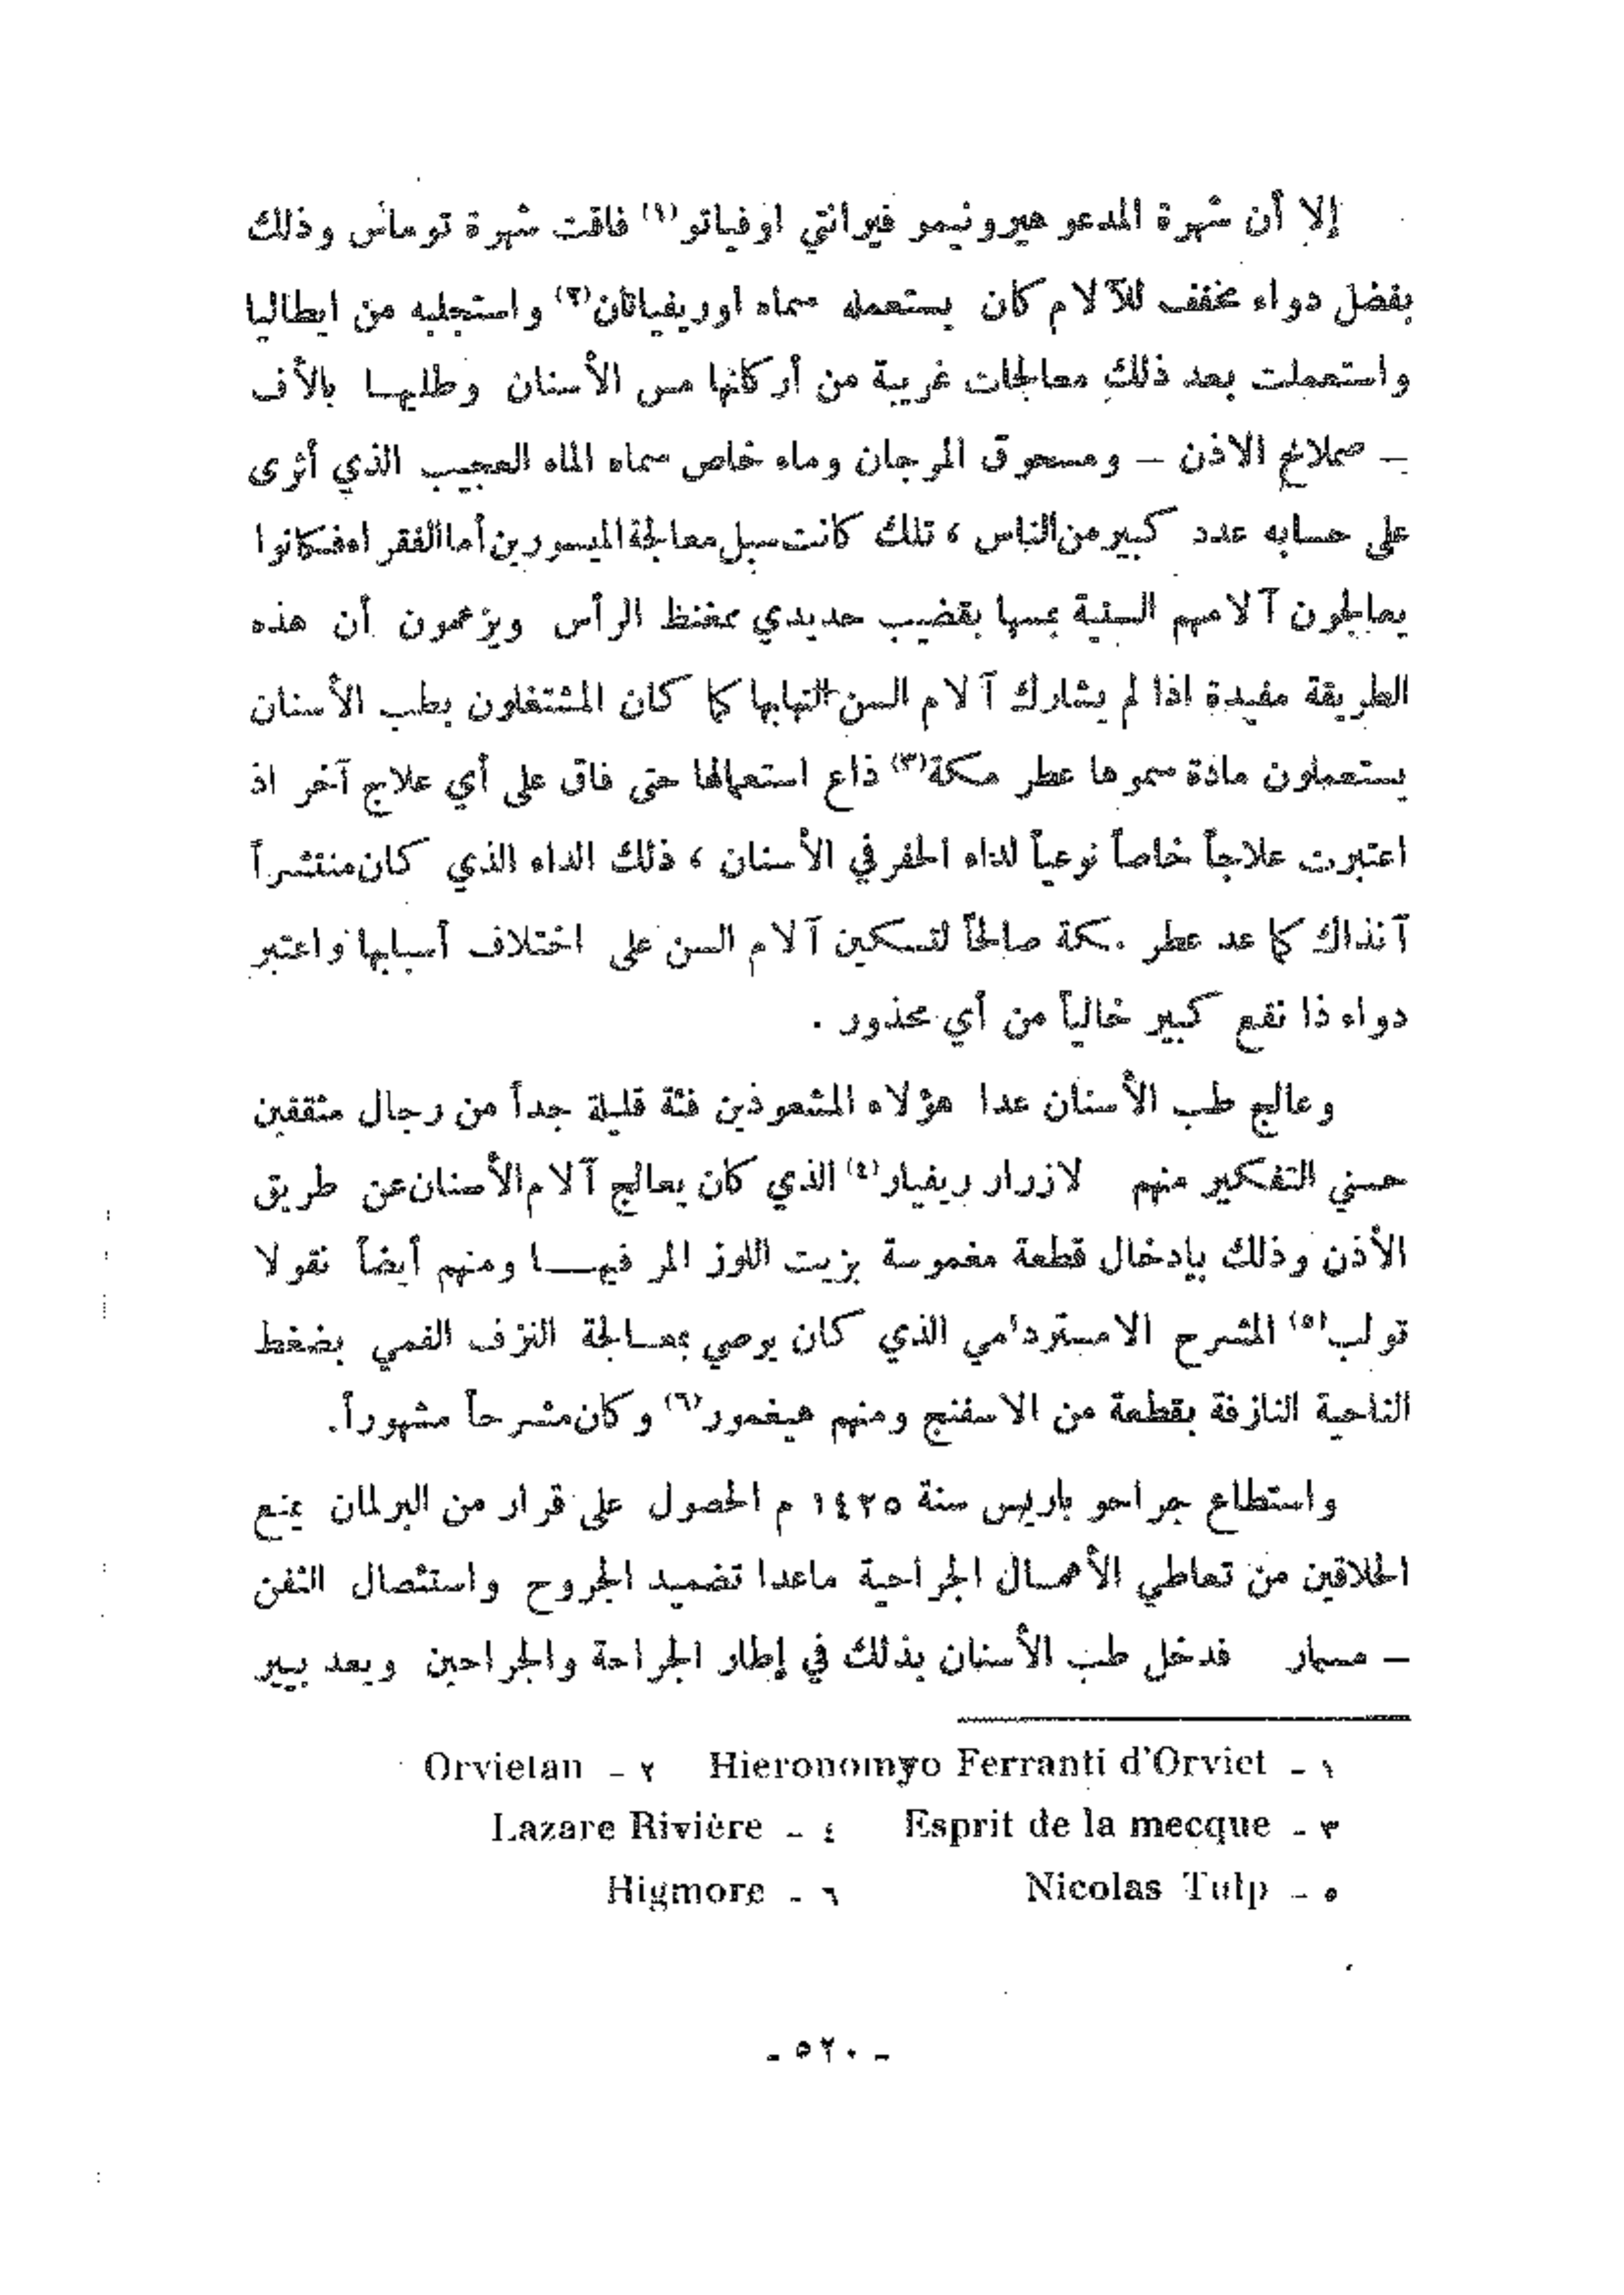 إلا أن شهرة المدعو هيرونيمو فيرانتي اوفياتو(١) فاقت شهرة توماس وذلك
بفضل دواء مخفف للآلام كان يستعمله سماه اوريفياتان(٢) واستجلبه من ايطاليا
واستعملت بعد ذلك معالجات غريبة من أركانها مس الأسنان وطليها بالأف
– صملاخ الاذن – ومسحوق المرجان وماء خاص سماه الماء العجيب الذي أثرى
على حسابه عدد كبير من الناس ، تلك كانت سبل معالجة الميسورين أما الفقراء فكانوا
يعالجون آلامهم السنية بمسها بقضيب حديدي ممغنط الرأس ويزعمون أن هذه
الطريقة مفيدة اذا لم يشارك آلام السن التهابها كما كان المشتغلون بطب الأسنان
يستعملون مادة سموها عطر مكة(٣) ذاع استعمالها حتى فاق على أي علاج آخر اذ
اعتبرت علاجاً خاصاً نوعياً لداء الحفر في الأسنان ، ذلك الداء الذي كان منتشراً
آنذاك كما عد عطر مكة صالحاً لتسكين آلام السن على اختلاف أسبابها واعتبر
دواء ذا نفع كبير خالياً من أي محذور .
وعالج طب الأسنان عدا هؤلاء المشعوذين فئة قليلة جداً من رجال مثقفين
حسني التفكير منهم لازرار ريفيار(٤) الذي كان يعالج آلام الأسنان عن طريق
الأذن وذلك بإدخال قطعة مغموسة بزيت اللوز المر فيهـــا ومنهم أيضاً نقولا
تولب(٥) المشرح الامستردامي الذي كان يوصي بمعـالجة النزف الفمي بضغط
الناحية النازفة بقطعة من الاسفنج ومنهم هيغمور(٦) وكان مشرحاً مشهوراً.
واستطاع جراحو باريس سنة ١٤٢٥ م الحصول على قرار من البرلمان يمنع
الحلاقين من تعاطي الأعمـال الجراحية ماعدا تضميد الجروح واستئصال الثفن
– مسمار فدخل طب الأسنان بذلك في إطار الجراحة والجراحين ويعد بيير
١ - Hieronomyo Ferranti d'Orviet ٢ - Orvietan
٣ - Esprit de la mecque ٤ - Lazare Rivière
٥ - Nicolas Tulp ٦ - Higmore
- ٥٢٠ -